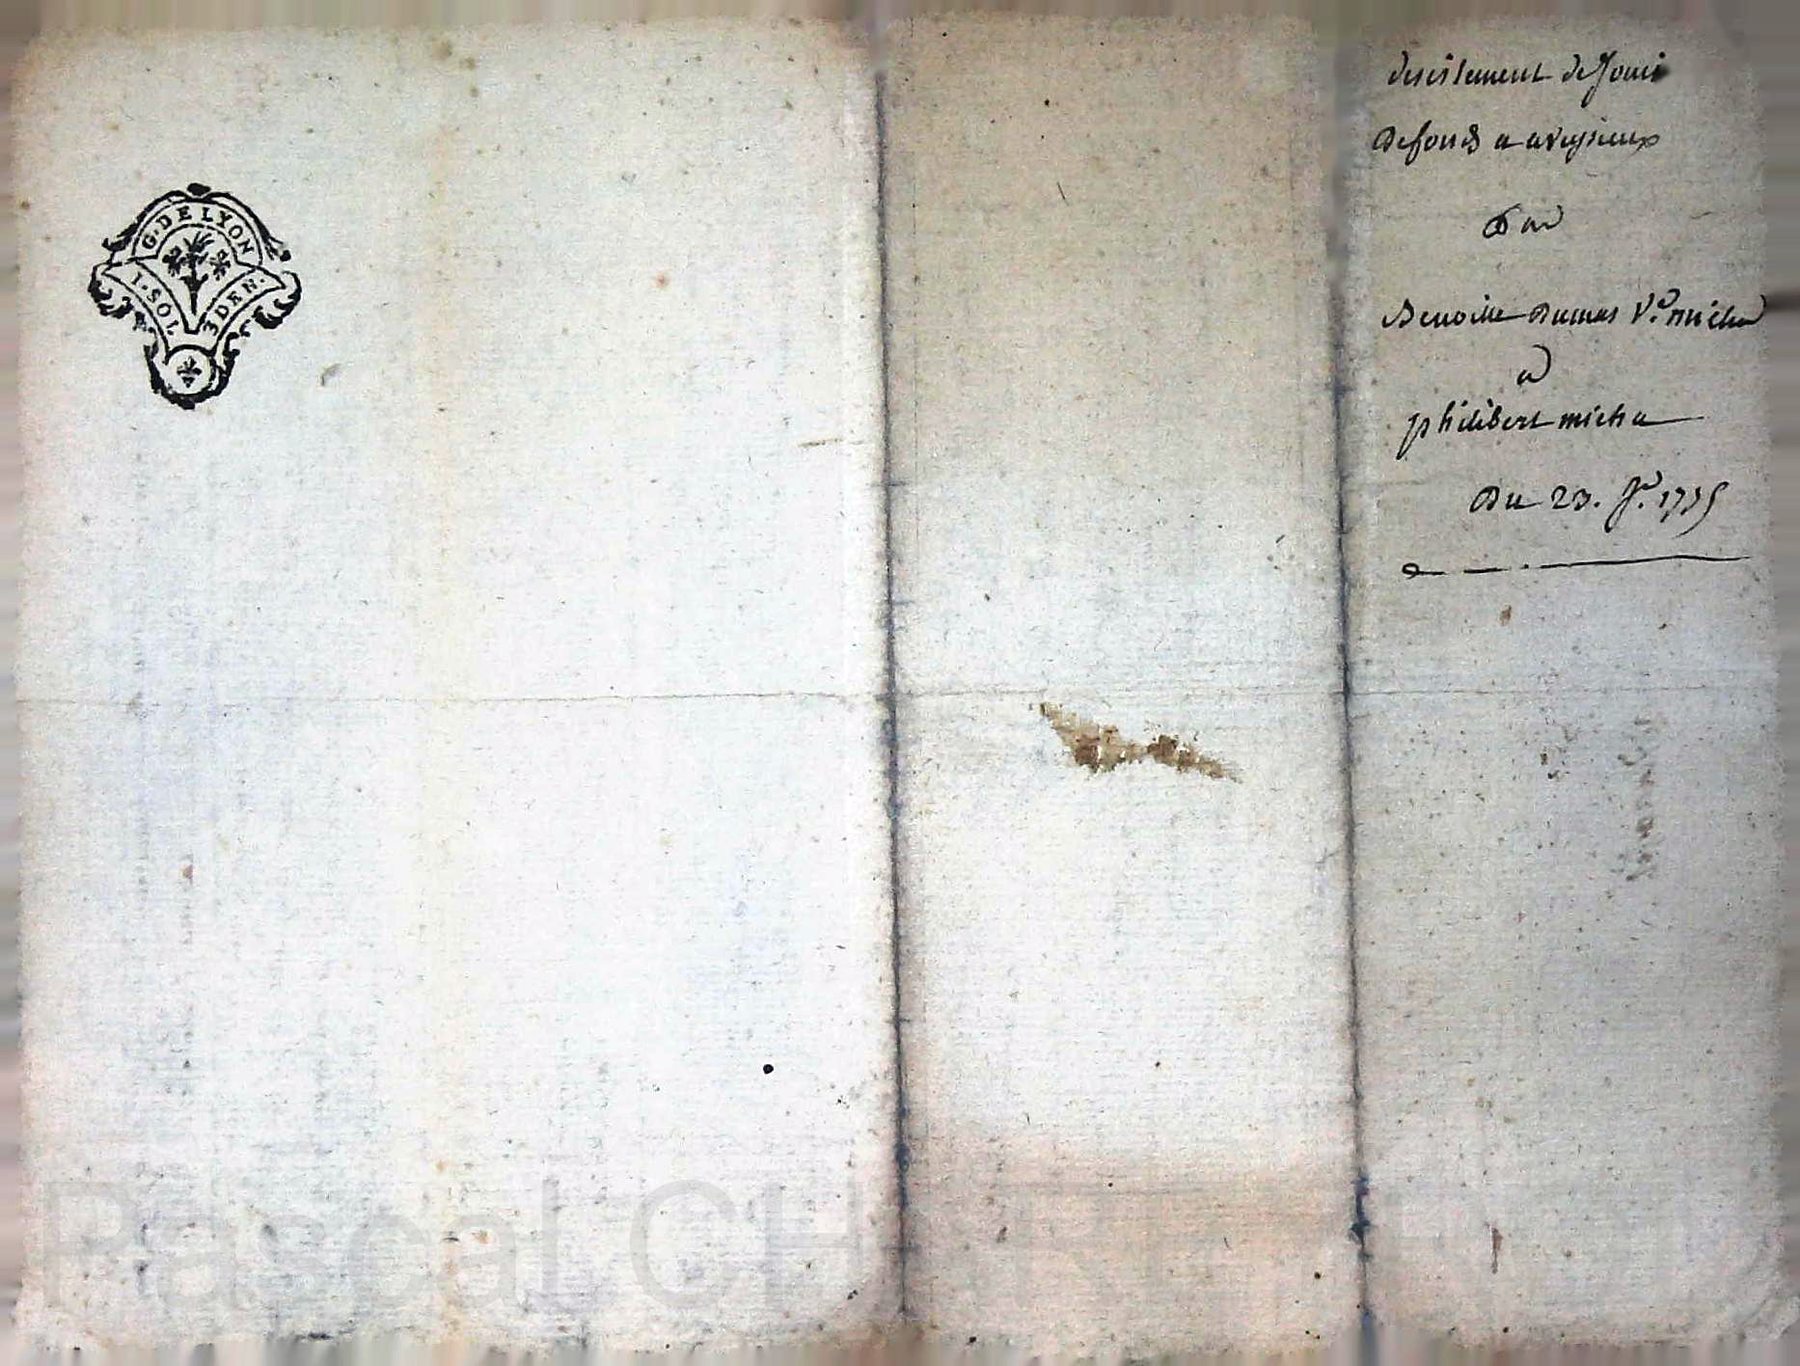 G. DE LYON
1. SOL. 3 DEN.
desistement de Joui
de fonds a aveysieux
Par
Benoitte Dumas V.e micha
a
philibert micha
Du 23. 1735
Pascal CH